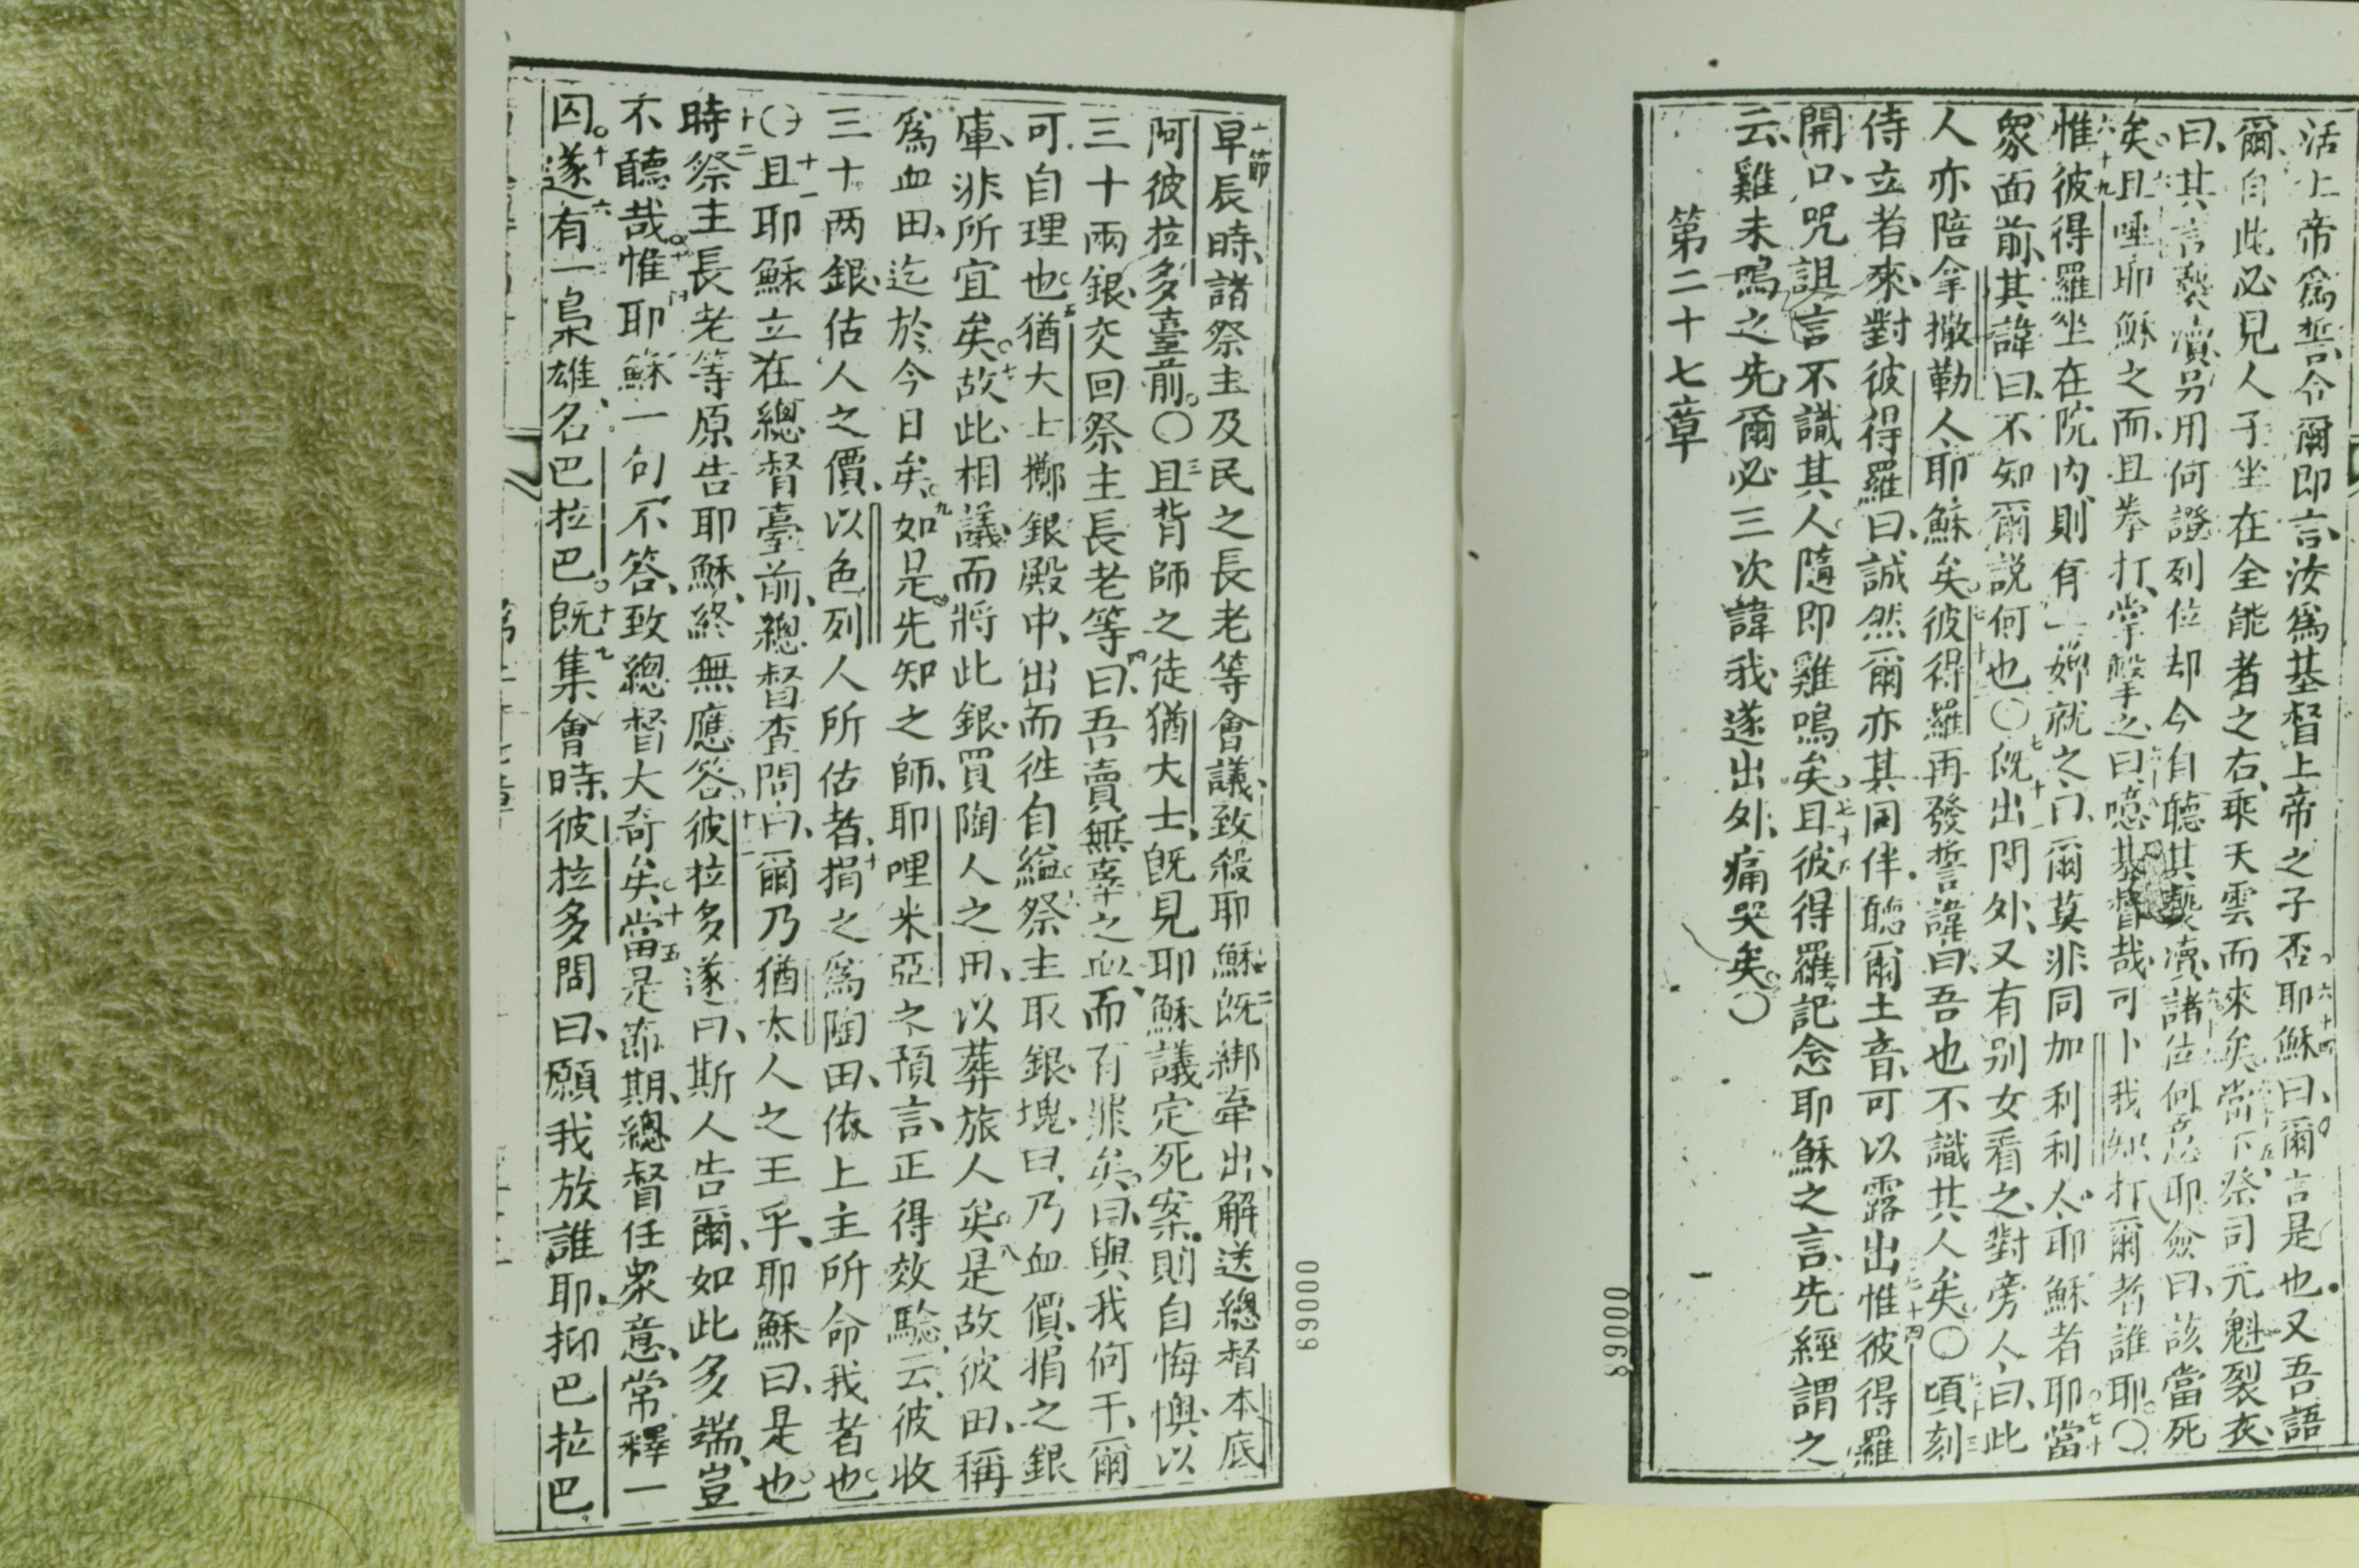 活上帝爲誓、令爾即言、汝爲基督上帝之子否。六十四耶穌曰、爾言是也。又吾語
爾、自此必見人子坐在全能者之右、乘天雲而來矣。六十五當下、祭司元魁裂衣、
曰、其言褻瀆、另用何證、列位却今自聽其褻瀆、諸位何意耶、僉曰、該當死
矣。且唾耶穌之面、且拳打、掌擊之曰、噫基督哉、可卜我知打爾者誰耶。〇
六十九惟彼得羅坐在院內、則有一婢就之、曰、爾莫非同加利利人耶穌者耶。七十當
衆面前、其諱曰、不知爾說何也。〇七十一旣出門外、又有別女看之、對旁人曰、此
人亦陪拿撒勒人耶穌矣。七十二彼得羅再發誓諱曰、吾也不識其人矣。〇七十三頃刻
侍立者來、對彼得羅曰、誠然爾亦其同伴、聽爾土音、可以露出。七十四惟彼得羅
開口、咒詛言不識其人、隨即雞鳴矣。七十五且彼得羅記念耶穌之言、先經謂之
云、雞未鳴之先、爾必三次諱我、遂出外、痛哭矣。〇
第二十七章
00068
一節早辰時、諸祭主及民之長老等會議、致殺耶穌。二旣綁牽出、解送總督本底
阿彼拉多臺前。〇三且背師之徒猶大士、旣見耶穌議定死案、則自悔懊、以
三十兩銀、交回祭主長老等。四曰、吾賣無辜之血、而有罪矣。曰、與我何干、爾
可自理也。五猶大士擲銀殿中、出而徃自縊。六祭主取銀塊、曰、乃血價、捐之銀
庫、非所宜矣。七故此相議、而將此銀、買陶人之田、以葬旅人矣。八是故彼田、稱
爲血田、迄於今日矣。九如是先知之師、耶哩米亞之預言、正得效驗、云、彼收
三十兩銀、估人之價、以色列人所估者、十捐之爲陶田、依上主所命我者也。
〇十一且耶穌立在總督臺前、總督查問曰、爾乃猶太人之王乎、耶穌曰、是也。
十二時祭主長老等原告耶穌、終無應答。十三彼拉多遂曰、斯人告爾、如此多端、豈
不聽哉。十四惟耶穌一句不答、致總督大奇矣。十五當是節期、總督任衆意、常釋一
囚。十六遂有一梟雄、名巴拉巴。十七旣集會時、彼拉多問曰、願我放誰耶、抑巴拉巴
00069